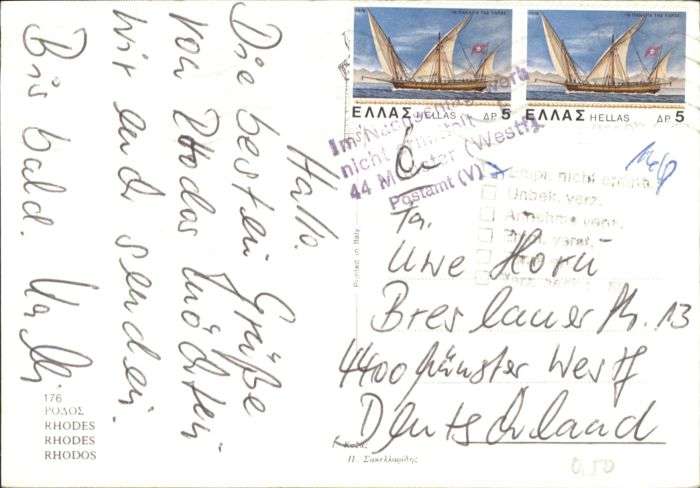 Hallo.
Die besten Grüße
von Rhodos möchten
wir euch senden.
Bis bald.
176
ΡΟΔΟΣ
RHODES
RHODES
RHODOS
ΕΛΛΑΣ HELLAS ΔΡ 5
ΕΛΛΑΣ HELLAS ΔΡ 5
Im Nachschlagewerk
nicht ermittelt
44 Münster (Westf)
Postamt (V)
Empf. nicht ermitt.
Unbek. verz.
Annahme verw.
An
Fa.
Uwe Horn
Breslauer Str. 13
4400 Münster Westf
Deutschland
Printed in Italy
Π. Σακελλαρίδης
0,50